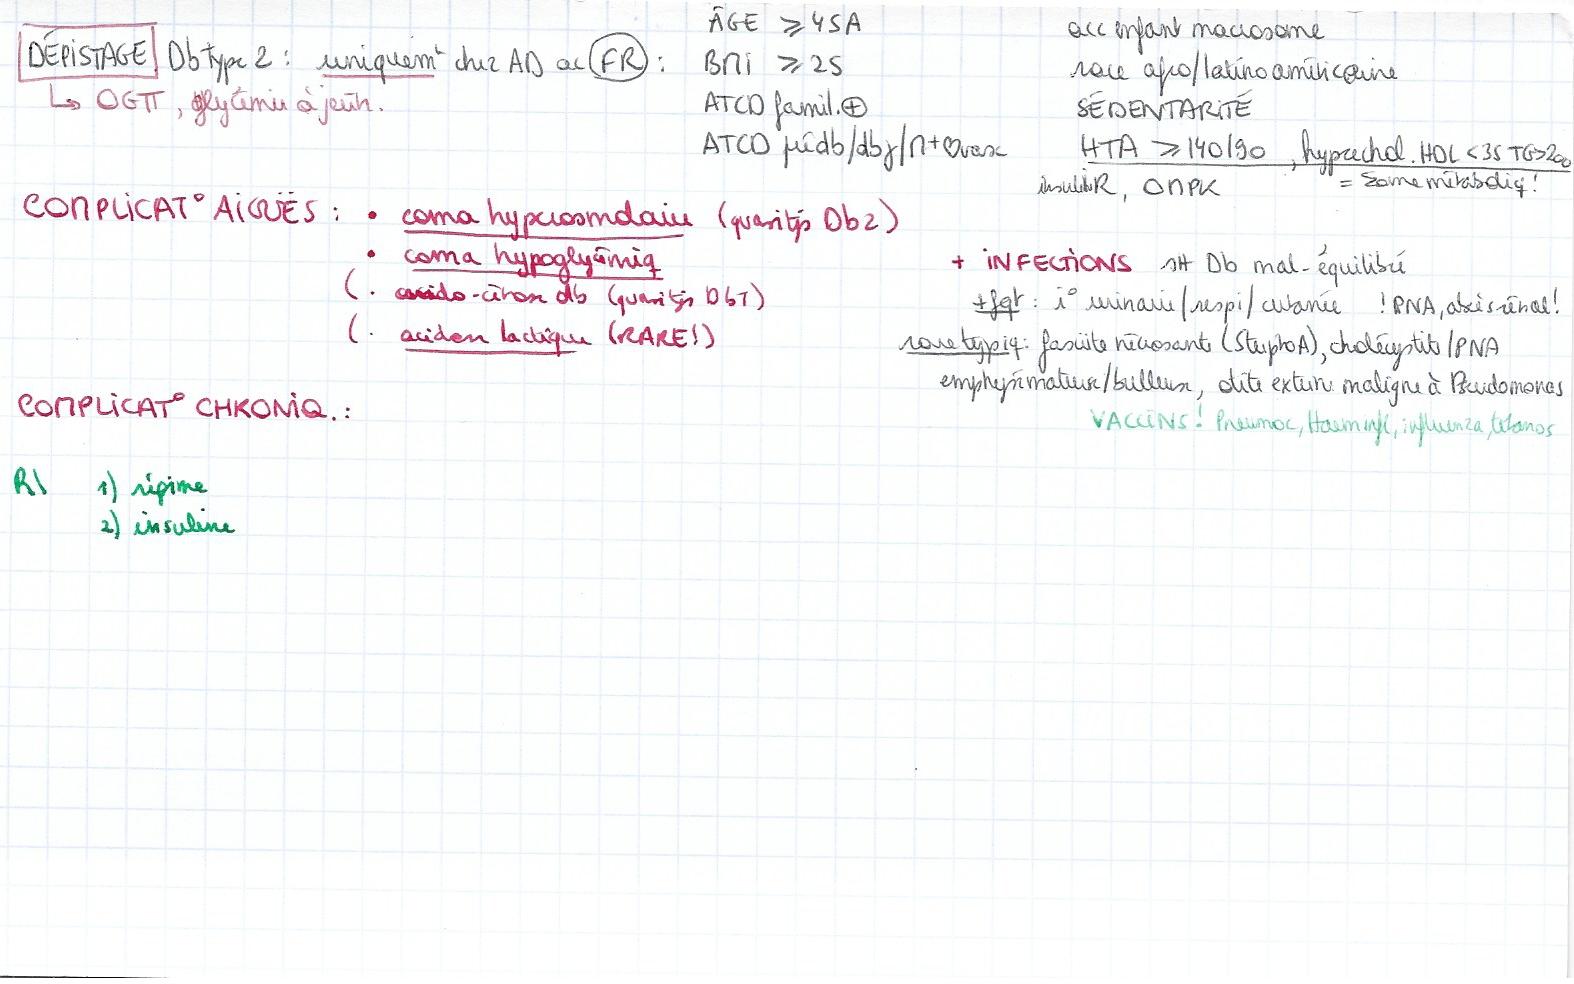 DÉPISTAGE Db type 2 : uniquemt chez AD ac FR :
↳ OGTT, glycémie à jeûn.
ÂGE ≥ 45A
BMI ≥ 25
ATCD famil. ⊕
ATCD
acc enfant macrosome
race afro/latino américaine
SÉDENTARITÉ
HTA ≥ 140/90, hyperchol. HDL < 35 TG > 200
insulinoR, OMPK
= métaboliq!
COMPLICAT° AIGUËS :
• coma hyperosmolaire (quasitjs Db2)
• coma hypoglycémiq
(. acido-cétose db (quasitjs Db1)
(. acidose lactique (RARE!)
+ INFECTIONS Db mal-équilibré
+fqt : i° urinaire/respi/cutanée ! PNA, abcès rénal!
rare typiq: fasciite nécrosante (StreptoA), cholécystite/PNA
emphysémateuse/bulleuse, otite externe maligne à Pseudomonas
VACCINS! Pneumoc, Haem infl, influenza, tétanos
COMPLICAT° CHRONIQ. :
R\ 1) régime
2) insuline